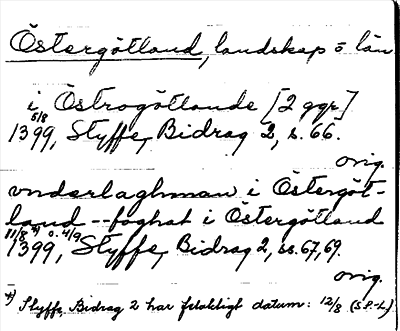 Östergötland, landskap o län
i Östrogötlande [2 ggr]
5/8
1399, Styffe, Bidrag 2, s. 66.
orig.
vnderlaghman i Östergöt-
land -- foghat i Östergötland
11/8 *) o. 4/9
1399, Styffe, Bidrag 2, ss. 67, 69.
orig.
*) Styffe, Bidrag 2 har felaktigt datum: 12/8 (S P-L).